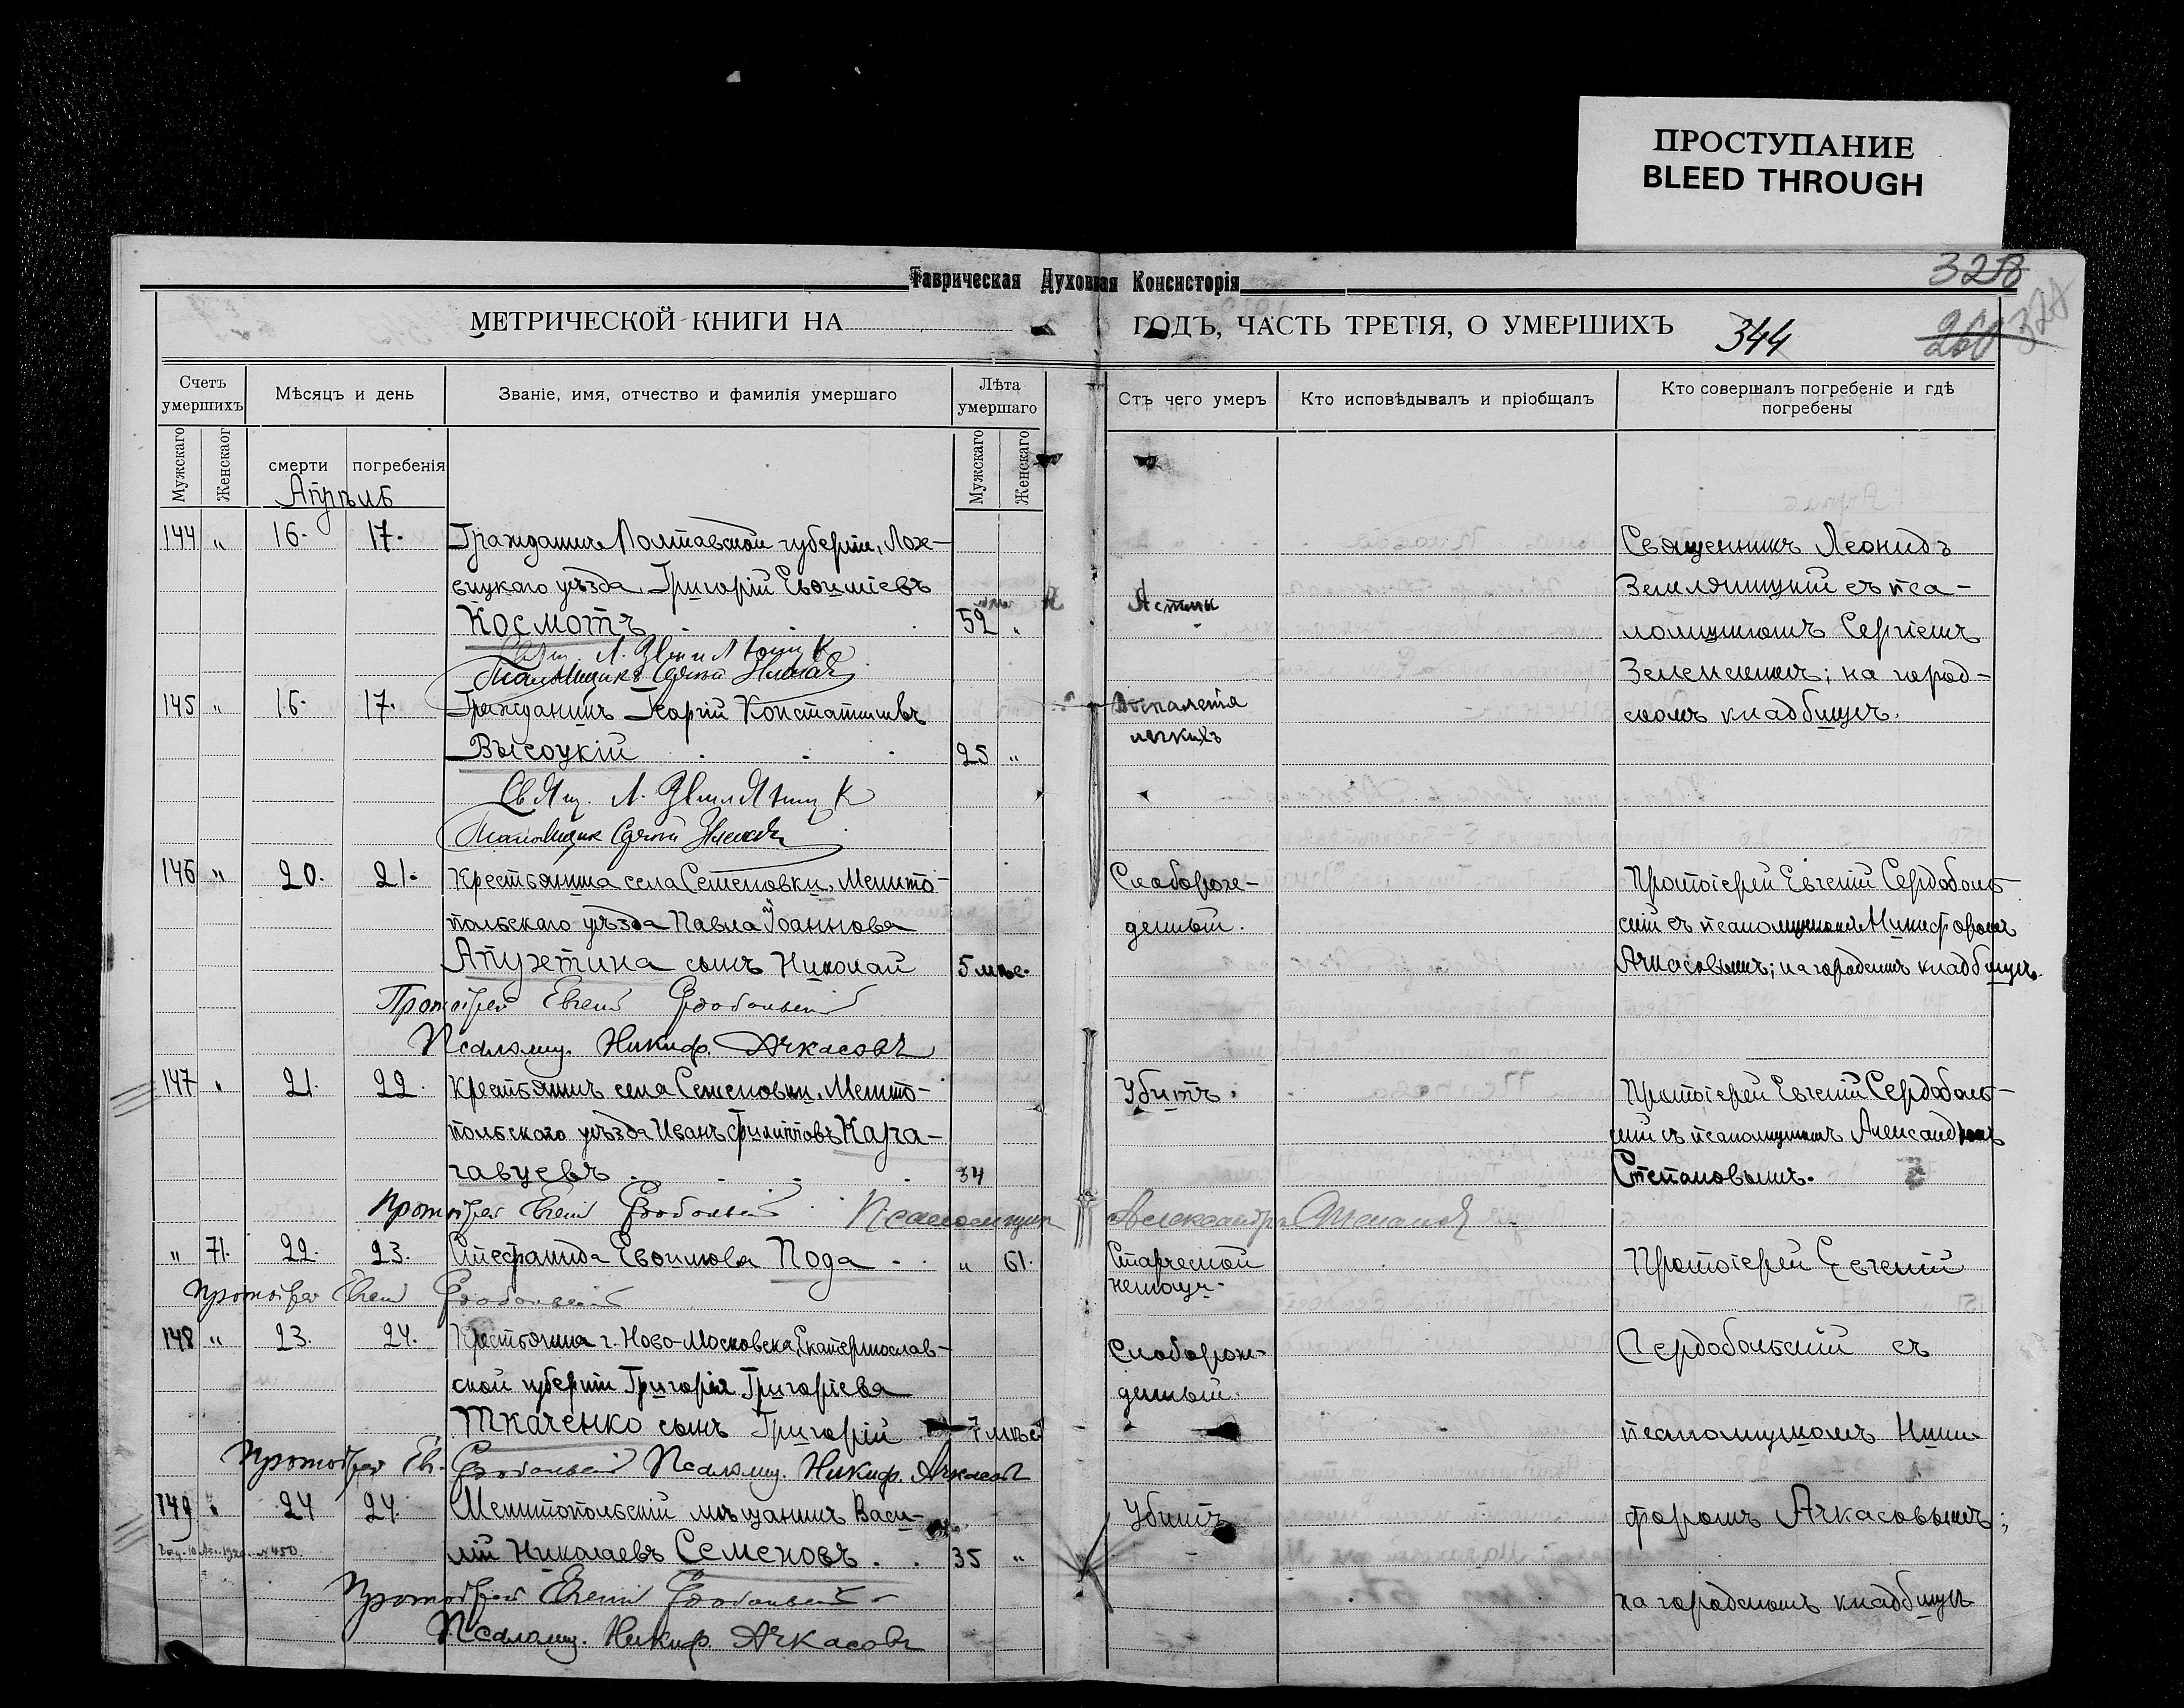 ПРОСТУПАНИЕ
BLEED THROUGH
Таврическая Духовная Консисторія
328
МЕТРИЧЕСКОЙ КНИГИ НА ГОДЪ, ЧАСТЬ ТРЕТІЯ, О УМЕРШИХЪ
344
260 328
Счетъ умершихъ
Мѣсяцъ и день
Званіе, имя, отчество и фамилія умершаго
Лѣта умершаго
Отъ чего умеръ
Кто исповѣдывалъ и пріобщалъ
Кто совершалъ погребеніе и гдѣ погребены
Мужскаго
Женскаог
смерти
погребенія
Мужскаго
Женскаго
Апрѣль
144 " 16. 17. Гражданинъ Полтавской губерніи, Лох- Священникъ Леонидъ
вицкаго уѣзда, Григорій Евѳиміевъ Астмы Земляницкій съ пса-
Космотъ 52 " ломщикомъ Сергіемъ
Свящ. Л. Земляницк
Псаломщикъ Сергій
на город-
145 " 16. 17. Гражданинъ Георгій Константиновъ Воспаленія скомъ кладбищѣ.
Высоцкій 25 " легкихъ
Свящ. Л. Земляницк
Псаломщик Сергій
146 " 20. 21. Крестьянина села Семеновки, Мелито- Слаборож- Протоіерей Евгеній Сердоболь-
польскаго уѣзда Павла Іоаннова денный. скій съ псаломщикомъ Никифоромъ
Апухтина сынъ Николай 5 мѣс. Ачкасовымъ; на городскомъ кладбищѣ.
Протоіерей Евгеній Сердобольскій
Псаломщ. Никиф. Ачкасовъ
147 " 21. 22. Крестьянинъ села Семеновки, Мелито- Убитъ. Протоіерей Евгеній Сердоболь-
польскаго уѣзда Иванъ Филипповъ Кара- скій съ псаломщикомъ Александромъ
гавцевъ 34 Степановымъ.
Протоіерей Евгеній Сердобольскій Псаломщикъ Александръ Степановъ
" 71. 22. 23. Стефанида Евѳимова Пода " 61. Старческой Протоіерей Евгеній
немощи.
Протоіерей Евгеній Сердобольскій
148 " 23. 24. Крестьянина г. Ново-Московска, Екатеринослав- Слаборож- Сердобольскій съ
ской губерніи Григорія Григоріева денный.
Ткаченко сынъ Григорій 7 мѣс. псаломщикомъ Ники-
Протоіерей Ев. Сердобольскій Псаломщ. Никиф. Ачкасовъ
149 " 24 24. Мелитопольскій мѣщанинъ Васи- Убитъ форомъ Ачкасовымъ;
лій Николаевъ Семеновъ 35 "
Протоіерей Евгеній Сердобольскій на городскомъ кладбищѣ
Псаломщ. Никиф. Ачкасовъ